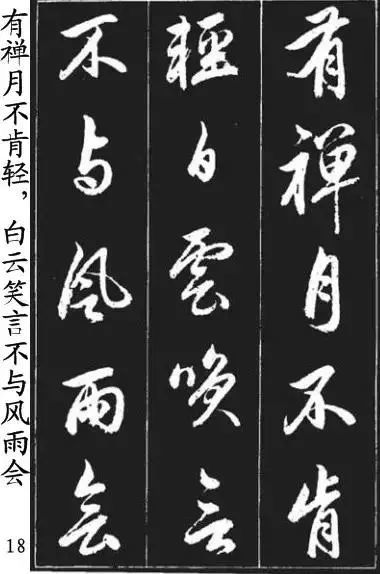 有禅月不肯
輕白雲咲言
不与風雨会
有禅月不肯轻，白云笑言不与风雨会
18